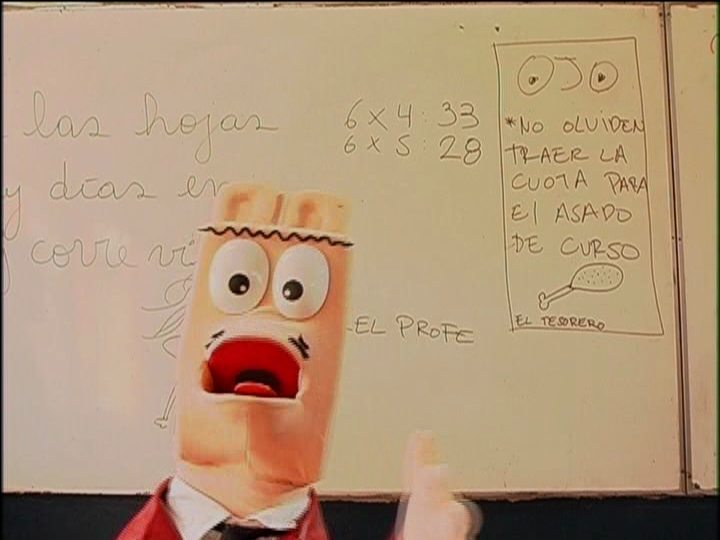 las hojas
y días en
y corre vi
6 x 4 : 33
6 x 5 : 28
-EL PROFE
OJO
*NO OLVIDEN
TRAER LA
CUOTA PARA
El ASADO
DE CURSO
EL TESORERO